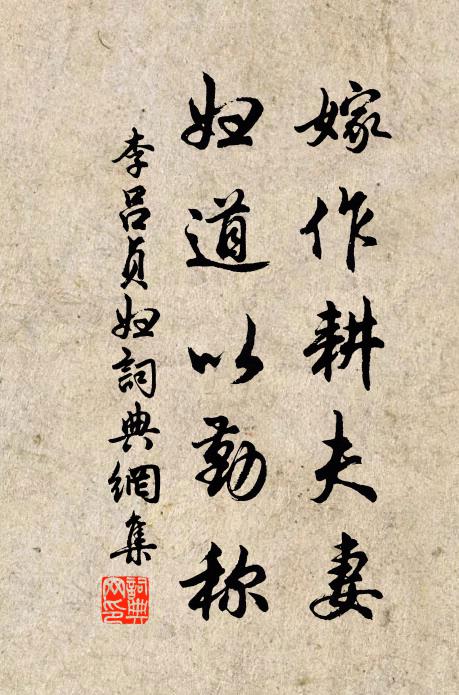 嫁作耕夫妻
妇道以勤称
李吕贞妇詞典網集
詞典
网印